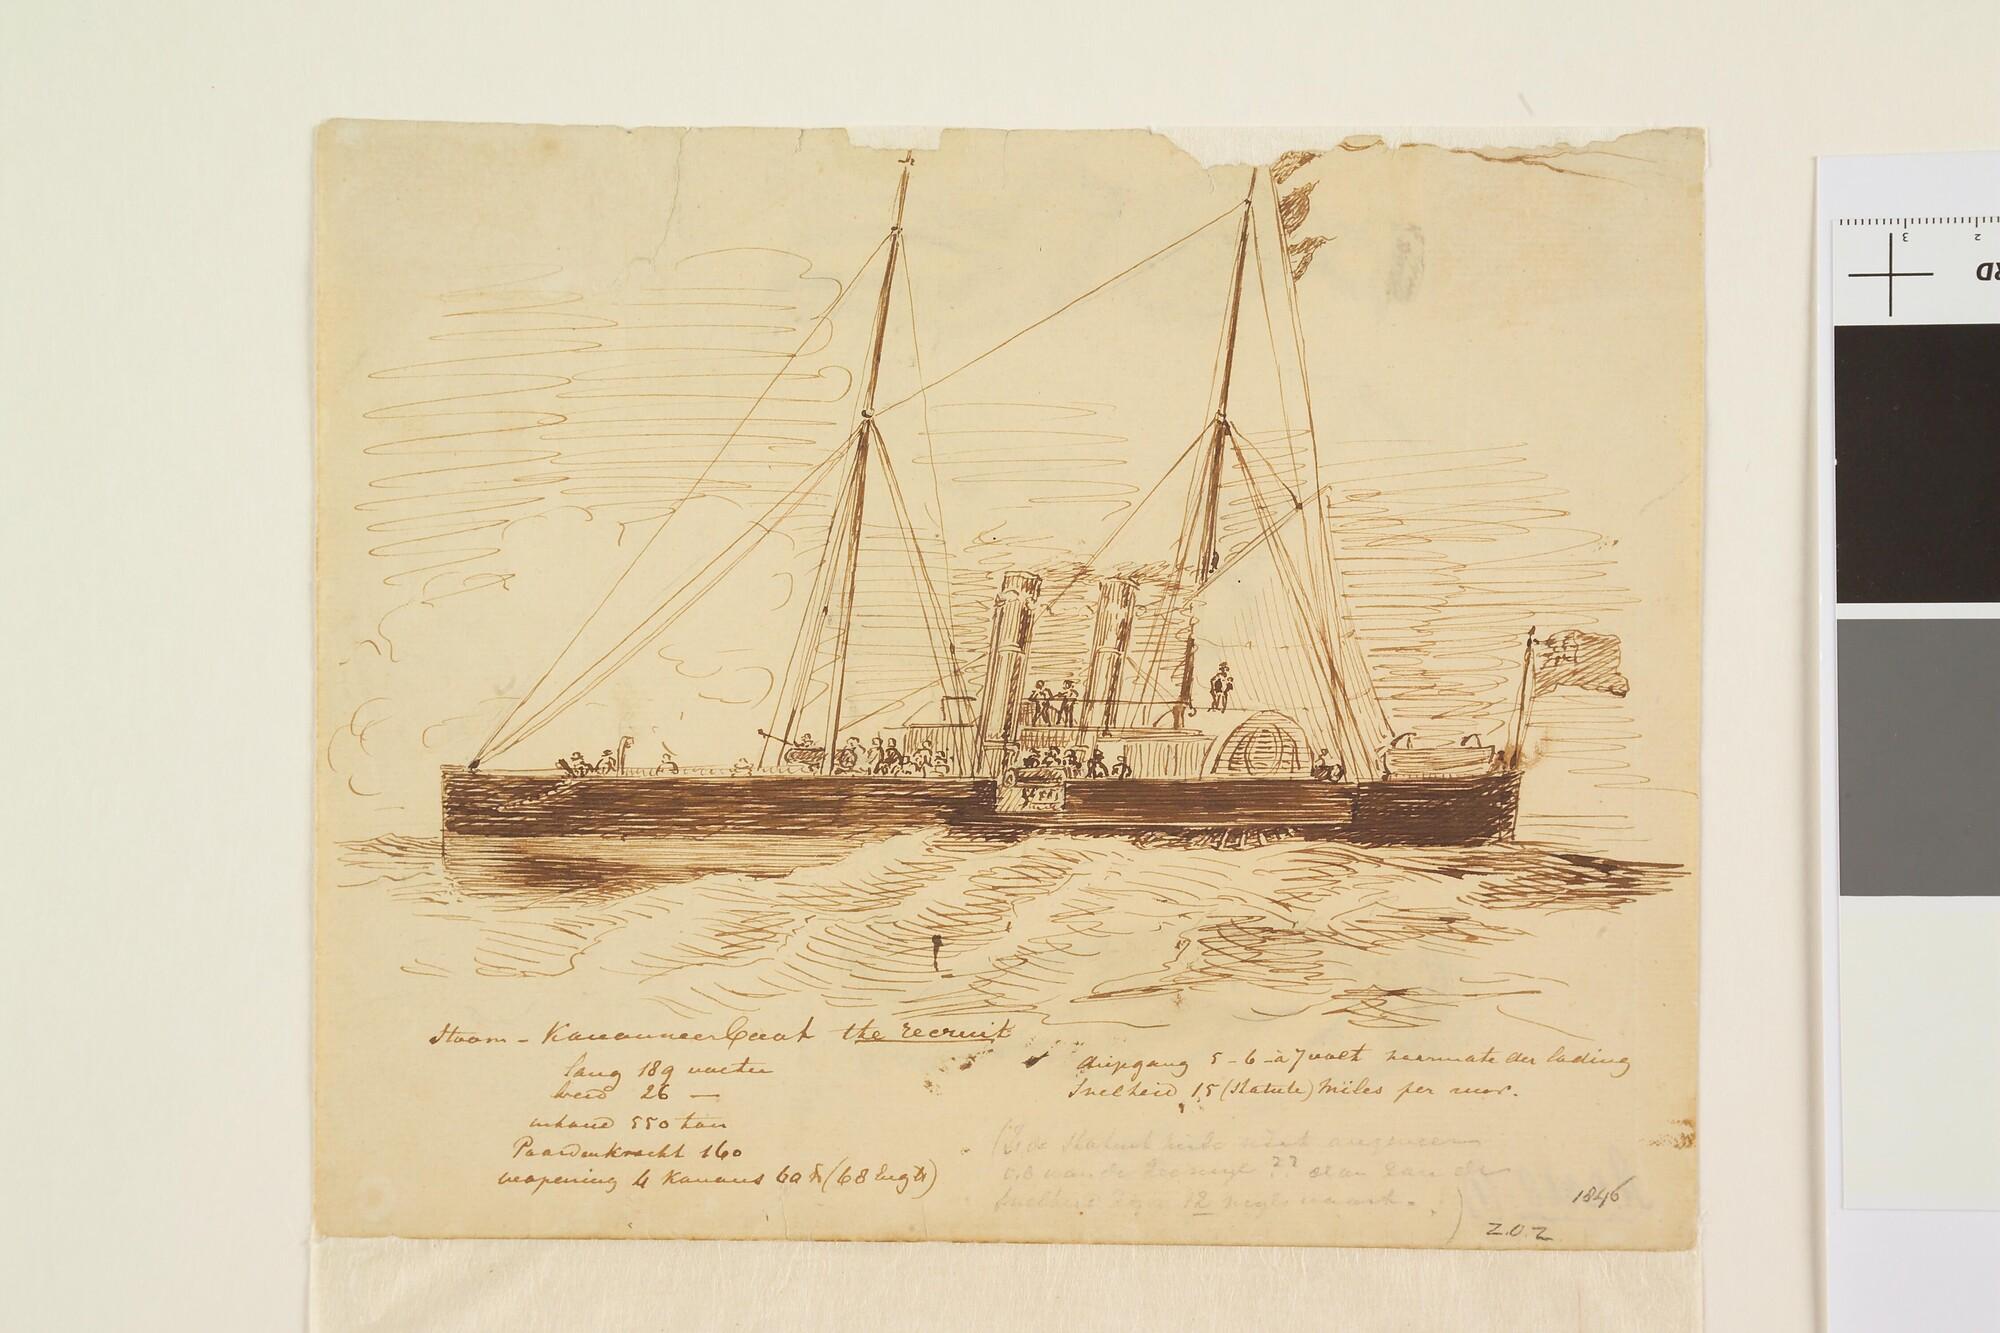 Stoom - Kanonneerboot the recruit
lang 189 voeten
breed 26 —
inhoud 550 ton
Paardenkracht 160
wapening 4 Kanons 60 ℔ (68 Eng ℔)
diepgang 5 - 6 à 7 voet naarmate der lading
Snelheid 15 (Statute) Miles per uur.
de Statute mile
van de ?? dan de
12
1846
Z.O.Z
3
2